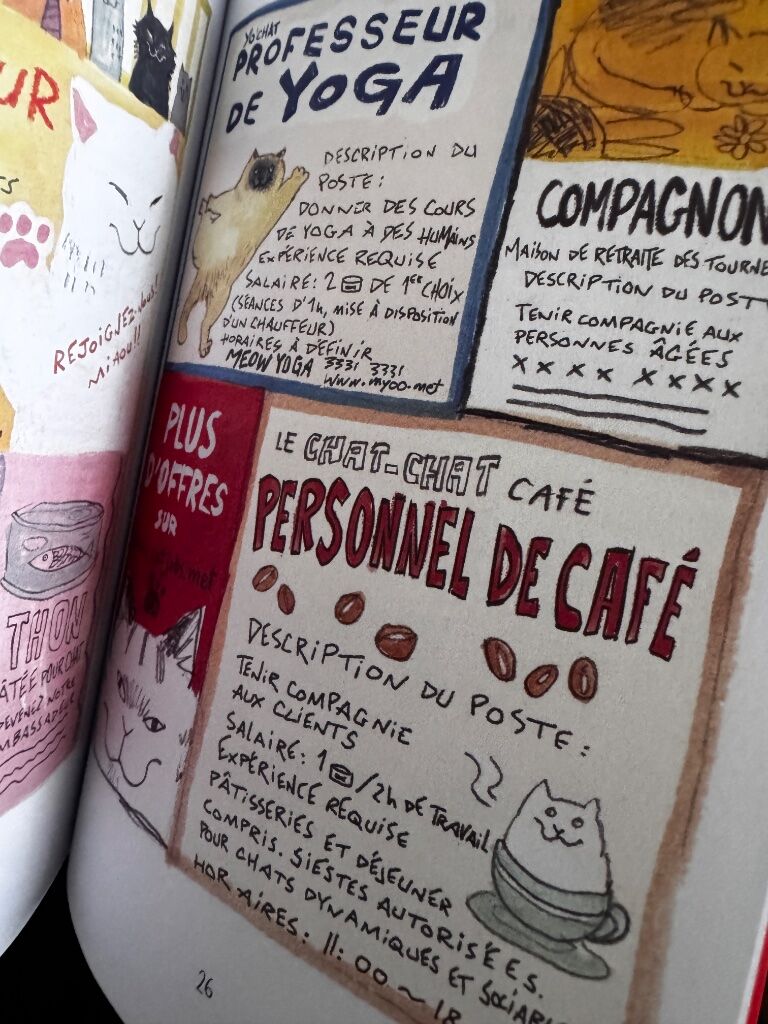 UR
REJOIGNEZ-nous!
MiAOU!!
THON
ÂTÉE POUR CHAT
DEVENEZ NOTRE
MBASSADEUR
YO'CHAT
PROFESSEUR
DE YOGA
DESCRIPTION DU
POSTE :
DONNER DES COURS
DE YOGA À DES HUMAINS
EXPÉRIENCE REQUISE
SALAIRE : 2 DE 1ER CHOIX
(SÉANCES D'1h, MISE À DISPOSITION
D'UN CHAUFFEUR)
HORAIRES À DÉFINIR
MEOW YOGA 3331 3331
www.myoo.met
COMPAGNON
MAISON DE RETRAITE DES TOURNE
DESCRIPTION DU POST
TENIR COMPAGNIE AUX
PERSONNES ÂGÉES
XXXX XXXX
PLUS
D'OFFRES
SUR
LE CHAT-CHAT CAFÉ
PERSONNEL DE CAFÉ
DESCRIPTION DU POSTE :
TENIR COMPAGNIE
AUX CLIENTS
SALAIRE : 1 /2h DE TRAVAIL
EXPÉRIENCE REQUISE
PÂTISSERIES ET DÉJEUNER
COMPRIS. SIESTES AUTORISÉES.
POUR CHATS DYNAMIQUES ET SOCIAB
HORAIRES : 11:00 ~ 18
26